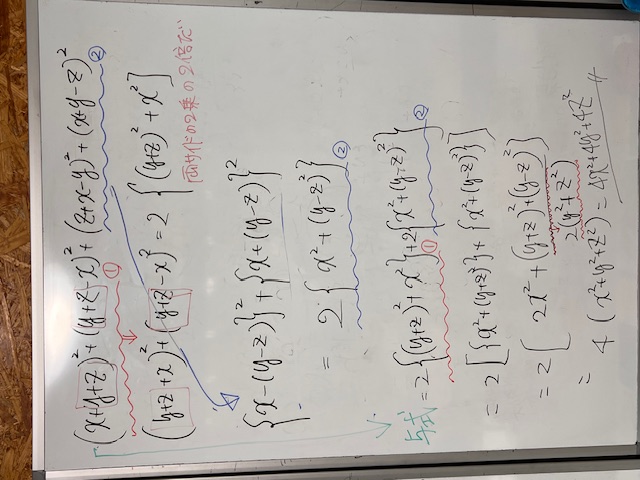 (x+y+z)²+(y+z-x)²+(z+x-y)²+(x+y-z)²
① ②
(y+z+x)²+(y+z-x)² = 2{(y+z)²+x²}
両サイドの2乗の2倍だ
{x-(y-z)}²+{x+(y-z)}²
= 2{x²+(y-z)²} ②
与式 = 2{(y+z)²+x²}+2{x²+(y-z)²}
① ②
= 2[{x²+(y+z)²}+{x²+(y-z)²}]
= 2[2x²+(y+z)²+(y-z)²}
2(y²+z²)
= 4(x²+y²+z²) = 4x²+4y²+4z²